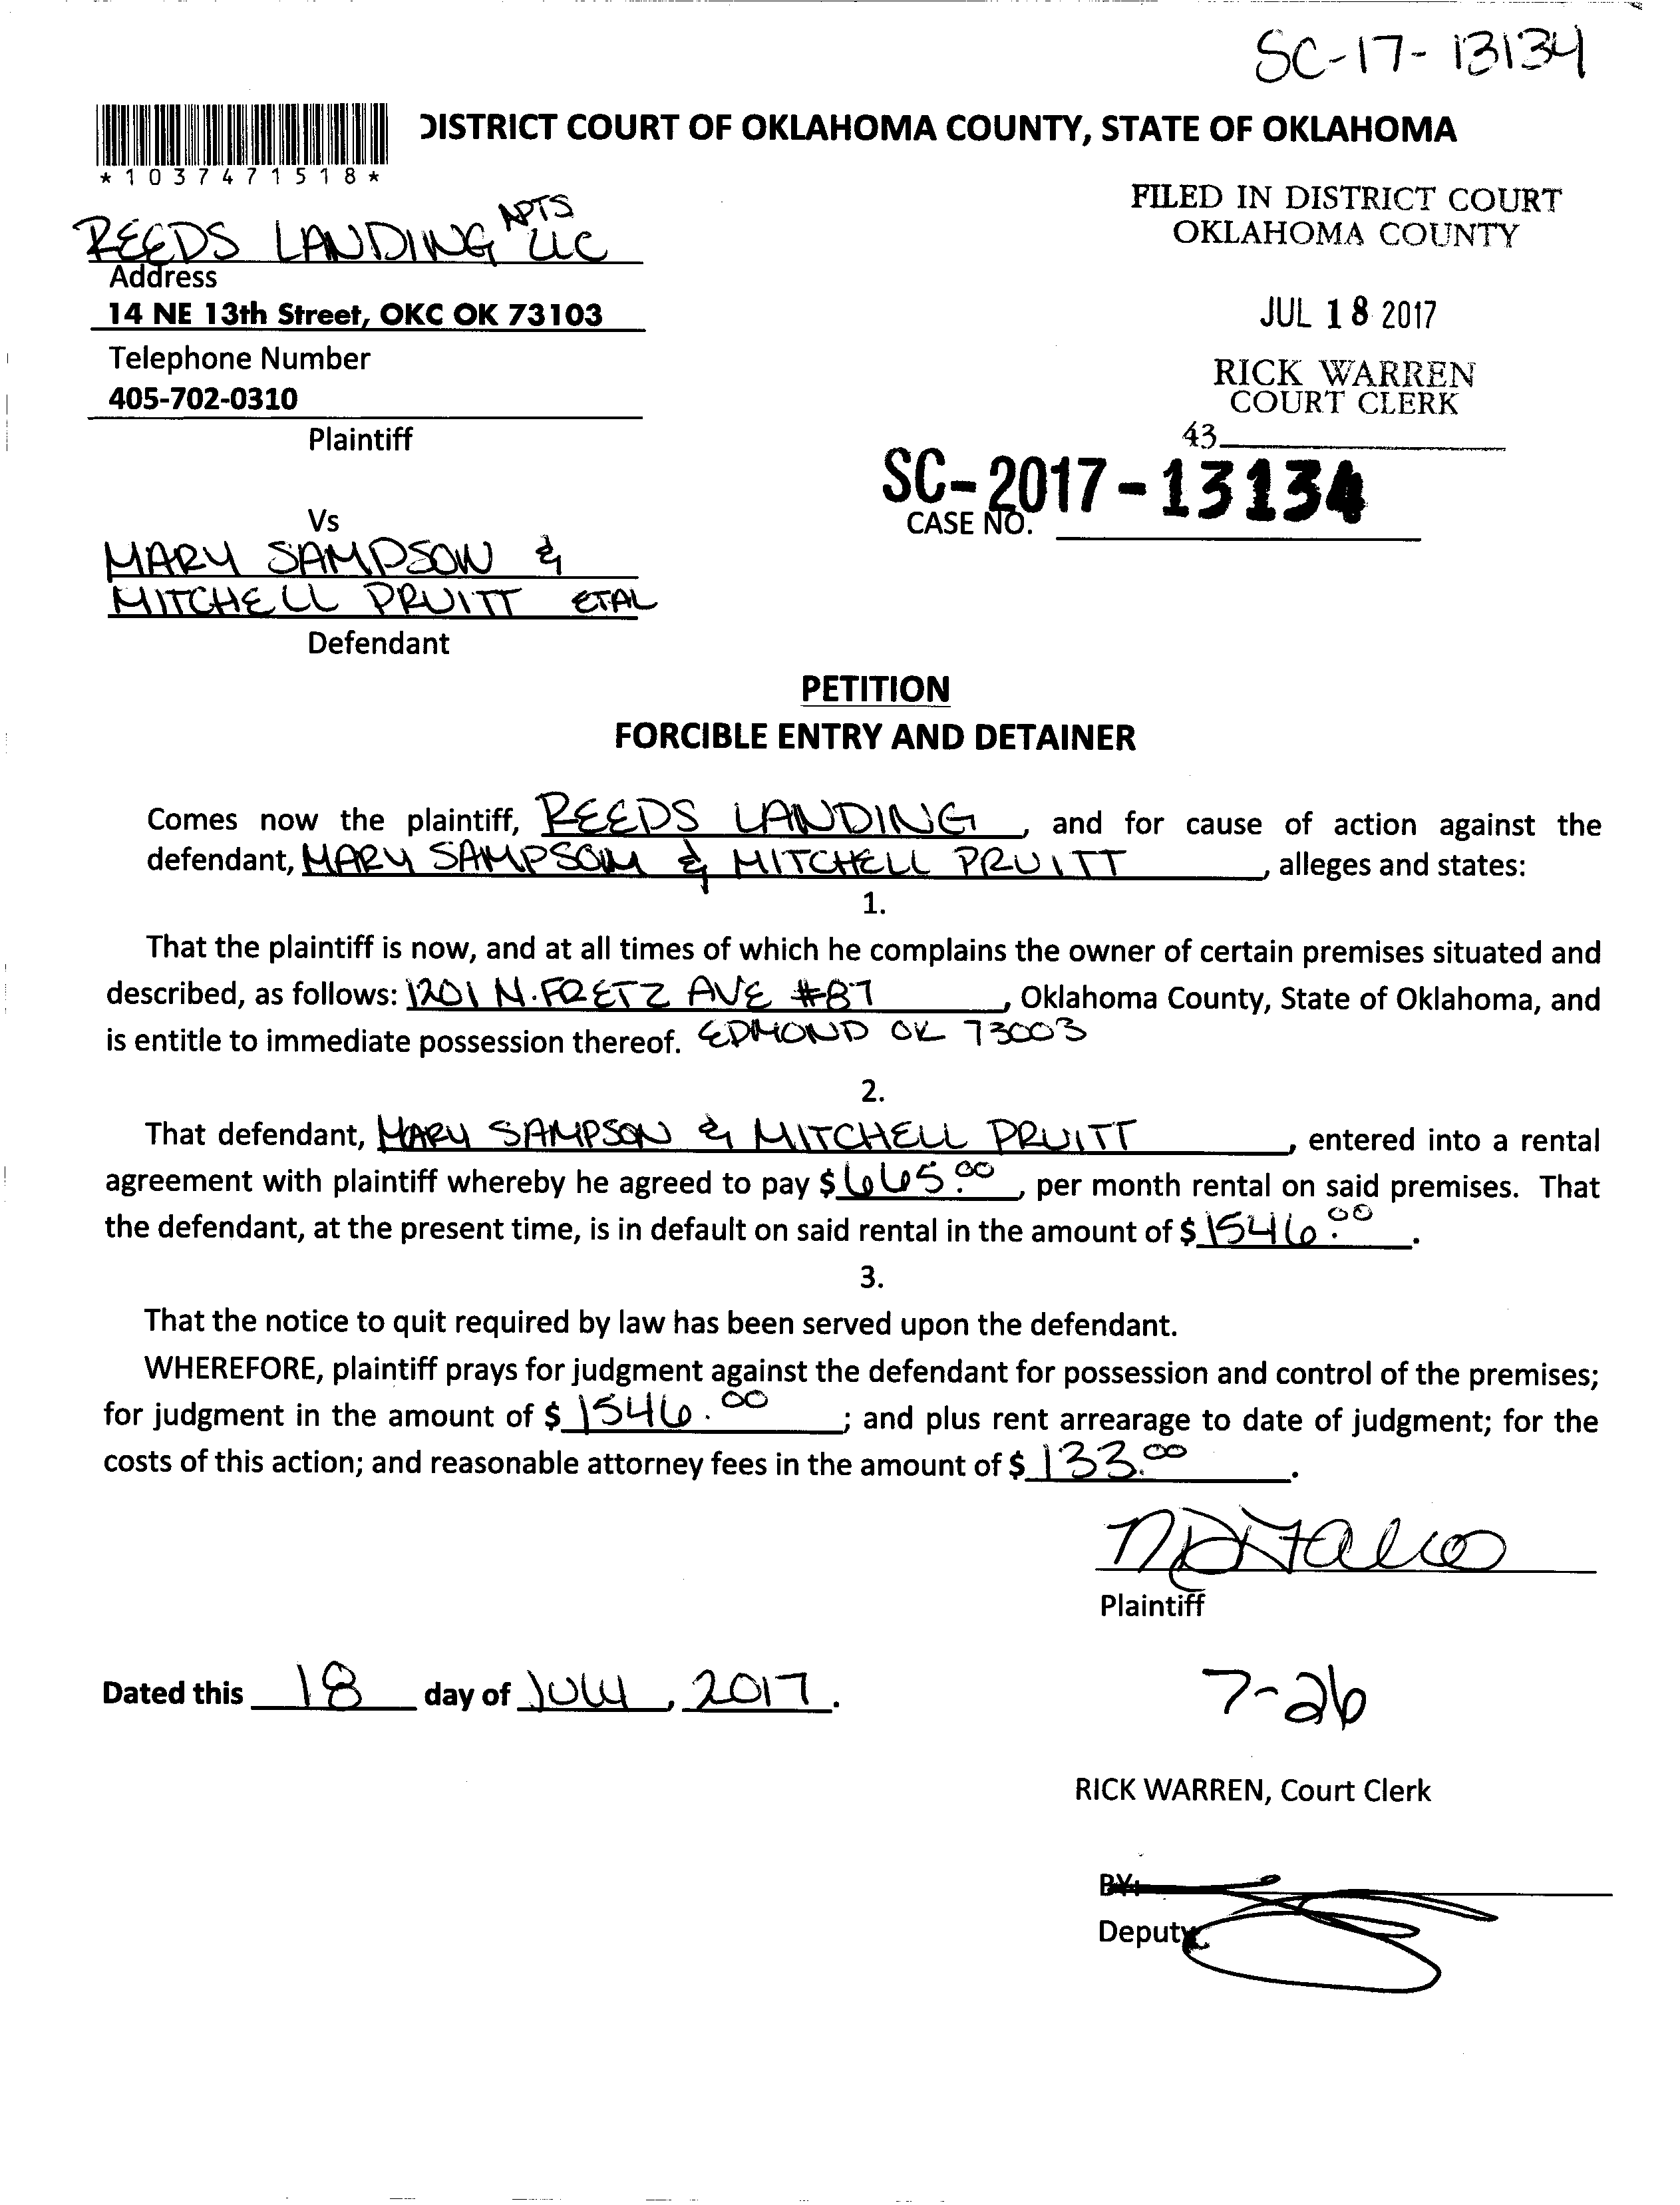 SC-17-13134
DISTRICT COURT OF OKLAHOMA COUNTY, STATE OF OKLAHOMA
*1037471518*
FILED IN DISTRICT COURT
OKLAHOMA COUNTY
REEDS LANDING APTS LLC
Address
14 NE 13th Street, OKC OK 73103
JUL 18 2017
Telephone Number
RICK WARREN
405-702-0310
COURT CLERK
Plaintiff
43
SC-2017-13134
CASE NO.
Vs
MARY SAMPSON &
MITCHELL PRUITT ETAL
Defendant
PETITION
FORCIBLE ENTRY AND DETAINER
Comes now the plaintiff, REEDS LANDING, and for cause of action against the
defendant, MARY SAMPSON & MITCHELL PRUITT, alleges and states:
1.
That the plaintiff is now, and at all times of which he complains the owner of certain premises situated and
described, as follows: 1201 N. FRETZ AVE #87, Oklahoma County, State of Oklahoma, and
is entitle to immediate possession thereof. EDMOND OK 73003
2.
That defendant, MARY SAMPSON & MITCHELL PRUITT, entered into a rental
agreement with plaintiff whereby he agreed to pay $665.00, per month rental on said premises. That
the defendant, at the present time, is in default on said rental in the amount of $1546.00.
3.
That the notice to quit required by law has been served upon the defendant.
WHEREFORE, plaintiff prays for judgment against the defendant for possession and control of the premises;
for judgment in the amount of $1546.00; and plus rent arrearage to date of judgment; for the
costs of this action; and reasonable attorney fees in the amount of $133.00.
Plaintiff
Dated this 18 day of JULY, 2017.
7-26
RICK WARREN, Court Clerk
BY:
Deputy